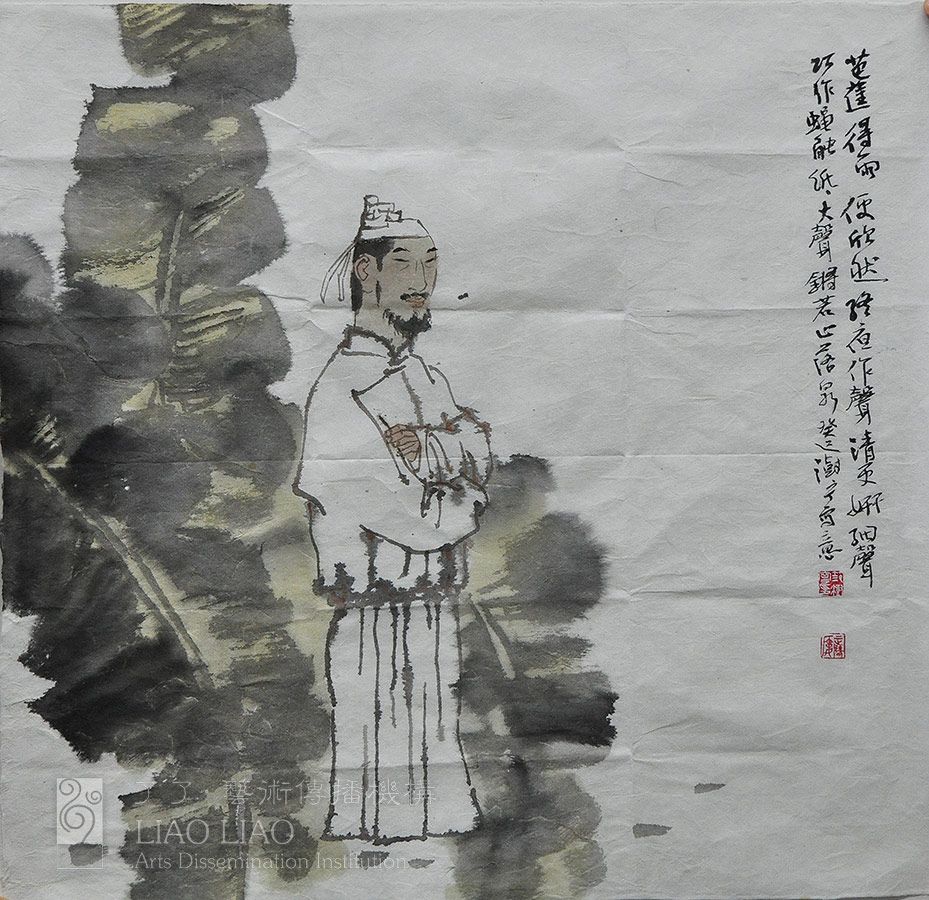 芭蕉得雨便欣然終夜作聲清更妍細聲
巧作蝇觸紙大聲鏘若山落泉癸巳 寫意
了了藝術傳播機構
LIAO LIAO
Arts Dissemination Institution